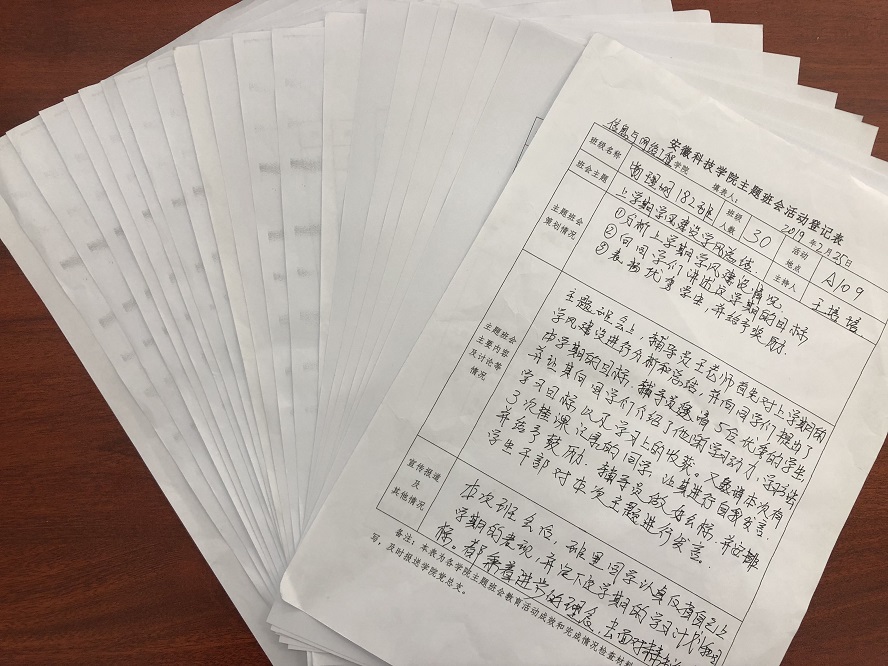 安徽科技学院主题班会活动登记表
信息与网络工程学院 填表人： 2019年2月25日
班级名称 物联网182班 班级人数 30 活动地点 A109
班会主题 上学期学风建设学风总结 主持人 王培培
主题班会策划情况
①分析上学期学风建设情况
②向同学们讲述这学期的目标
③表扬优秀学生，并给予奖励.
主题班会主要内容及讨论等情况
主题班会上，辅导员王老师首先对上学期的
学风建设进行分析和总结，并向同学们提出了
本学期的目标. 辅导员邀请5位优秀的学生，
并让其向同学们介绍了他们的学习动力，学习方法
学习目标以及学习上的收获。又邀请本次有
3次挂课记录的同学，让其进行自我发言.
并给予鼓励. 辅导员做好会标，并安排
学生干部对本次主题进行发言。
宣传报道及其他情况
本次班会后，班里同学认真反省自己上
学期的表现，并定下这学期的学习计划和目
标。都秉着进步的理念，去面对
备注：本表为各学院主题班会教育活动成败和完成情况检查材料
写，及时报送学院党总支。